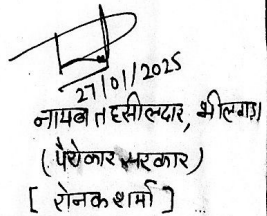 27/01/2025
नायब तहसीलदार, भीलवाड़ा
(पैरोकार सरकार)
[ रोनक शर्मा ]